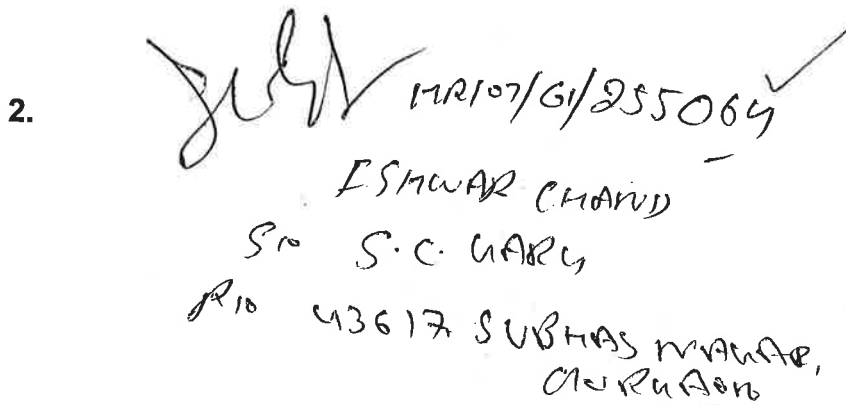 2. HR/07/61/255064
ISHWAR CHAND
S/o S.C. GARG
R/o 43617 SUBHAS NAGAR,
GURGAON